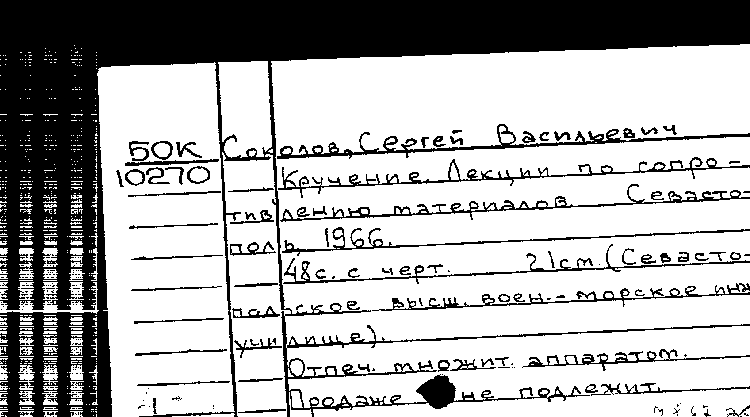 50К Соколов, Сергей Васильевич
10270 Кручение. Лекции по сопро-
тивлению материалов Севасто-
поль, 1966.
48с. с черт. 21см. (Севасто-
польское высш. воен.-морское инж
училище).
Отпеч. множит. аппаратом.
Продаже не подлежит.